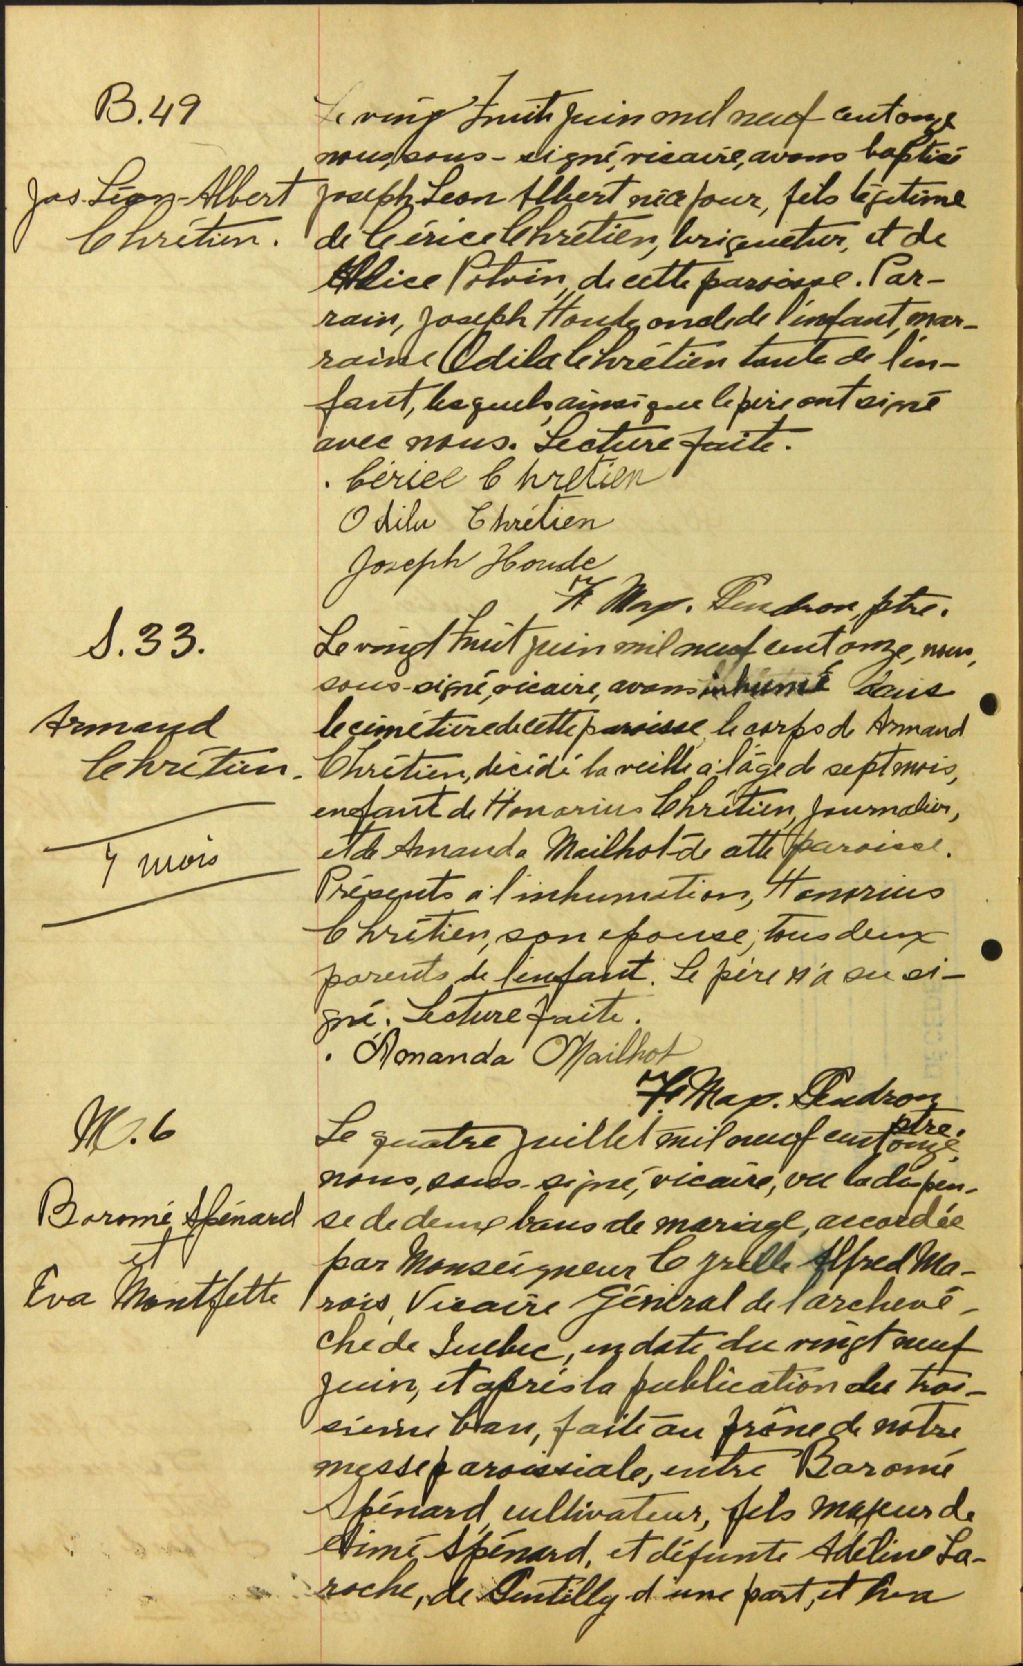 B.49
Jos. Léon-Albert
Chrétien.
Le vingt huit juin mil neuf cent onze
nous, sous-signé, vicaire, avons baptisé
Joseph Leon Albert né ce jour, fils légitime
de Cérice Chrétien, briqueteur, et de
Alice Potvin, de cette paroisse. Par-
rain, Joseph Houde oncle de l'enfant, mar-
raine Odila Chrétien tante de l'en-
fant, lesquels, ainsi que le père ont signé
avec nous. Lecture faite.
. Cérice Chrétien
Odila Chrétien
Joseph Houde
F. Max. Gendron, ptre.
S. 33.
Armand
Chrétien.
7 mois
Le vingt huit juin mil neuf cent onze, nous,
sous-signé, vicaire, avons inhumé dans
le cimétière de cette paroisse, le corps de Armand
Chrétien, décédé la veille à l'âge de sept mois,
enfant de Honorius Chrétien, journalier,
et de Amanda Mailhot de cette paroisse.
Présents à l'inhumation, Honorius
Chrétien, son epouse, tous deux
parents de l'enfant. Le père n'a su si-
gné. Lecture faite.
. Amanda Mailhot
F. Max. Gendron
ptre.
M. 6
Baromé Spénard
et
Eva Montfette
Le quatre juillet mil neuf cent onze,
nous, sous-signé, vicaire, vu la dispen-
se de deux bans de mariage, accordée
par Monseigneur Cyrille Alfred Ma-
rois, Vicaire Général de l'archevê-
ché de Québec, en date du vingt neuf
juin, et après la publication du troi-
sième ban, faite au prône de notre
messe paroissiale, entre Baromé
Spénard, cultivateur, fils majeur de
Aimé Spénard, et défunte Adéline La-
roche, de Gentilly d'une part, et Eva